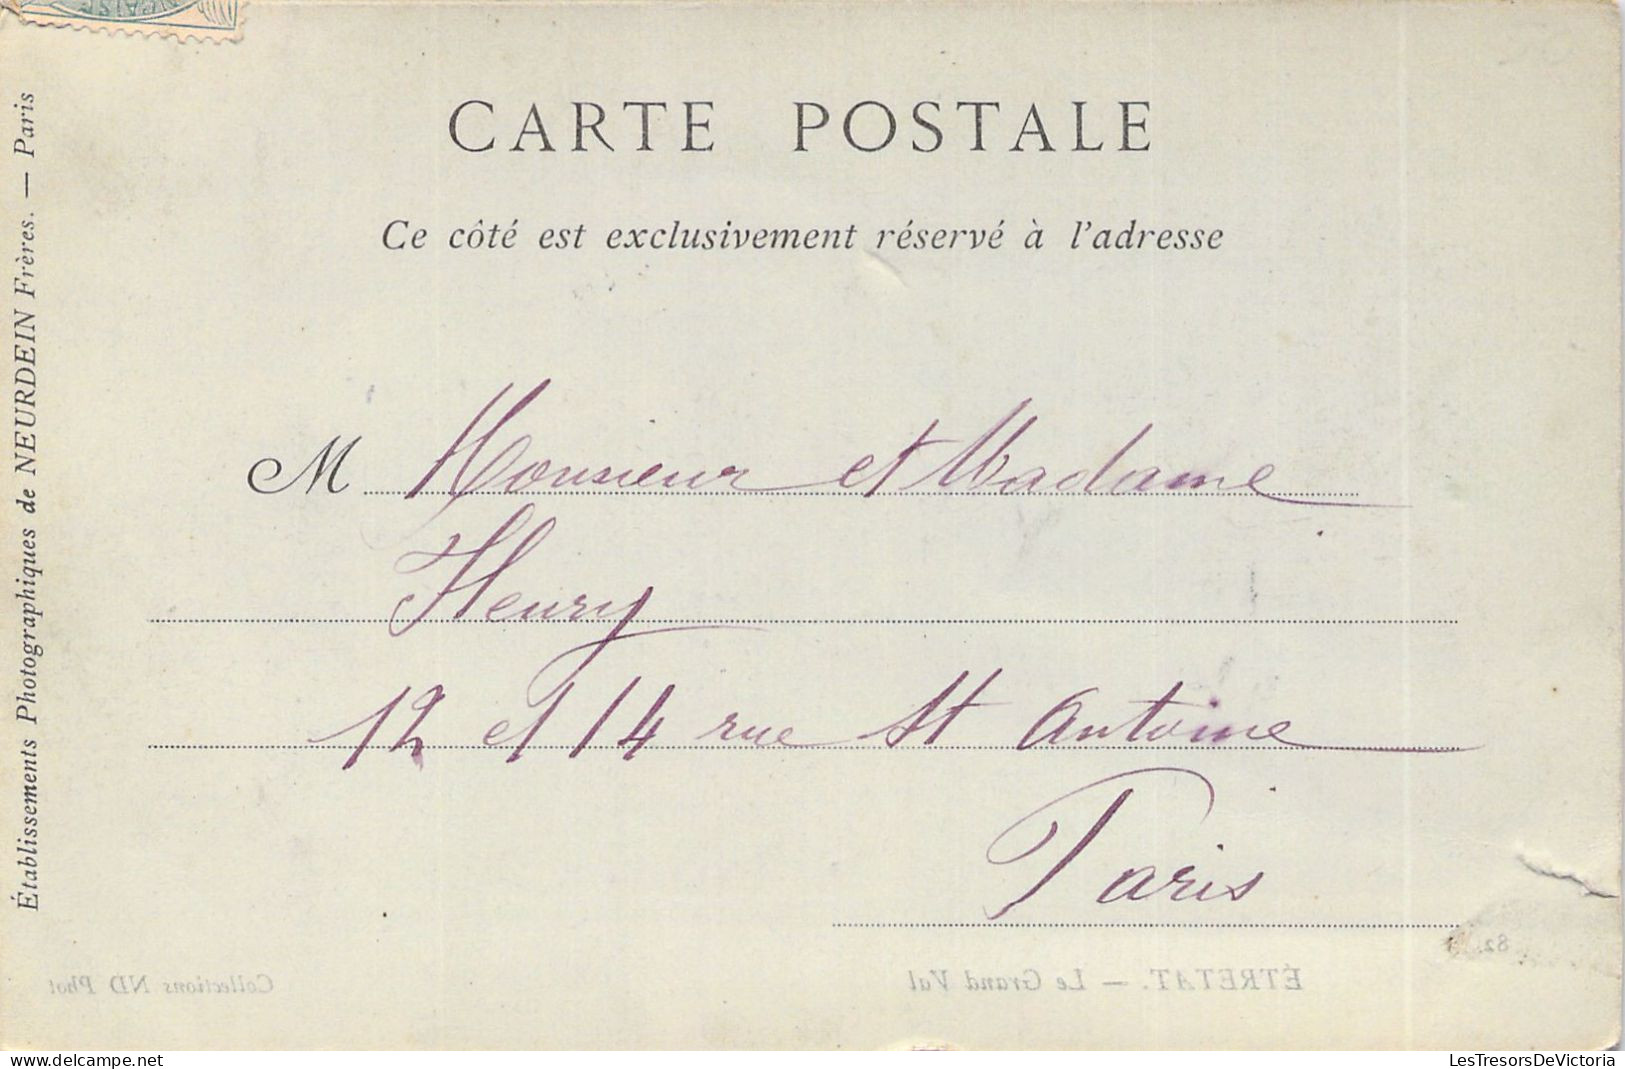 CARTE POSTALE
Ce côté est exclusivement réservé à l'adresse
M Monsieur et Madame
Henry
12 et 14 rue St Antoine
Paris
Établissements Photographiques de NEURDEIN Frères. — Paris
82.
ÉTRETAT. — Le Grand Val
Collections ND Phot
LesTresorsDeVictoria
www.delcampe.net